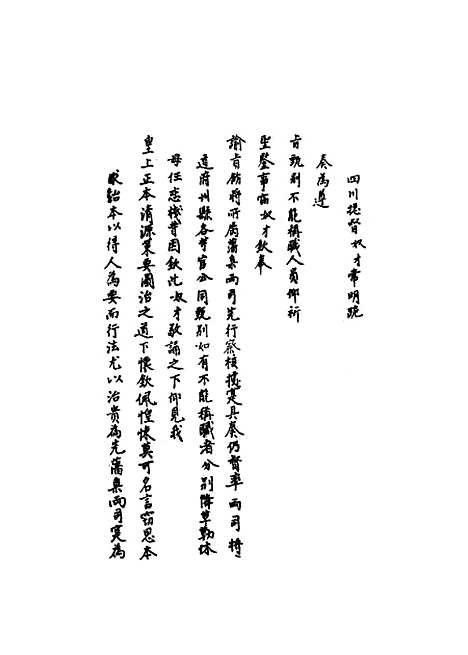 四川提督奴才常明跪
奏為遵
旨甄別不能稱職人員仰祈
聖鑒事竊奴才欽奉
諭旨飭將所屬藩臬兩司先行察核據實具奏仍督率兩司將
道府州縣各等官公同甄別如有不能稱職者分別降革勒休
毋任戀棧等因欽此奴才敬誦之下仰見我
皇上正本清源策要圖治之道下懷欽佩惶悚莫可名言竊思本
治本以得人為要而行法尤以治貴為先藩臬兩司寔為